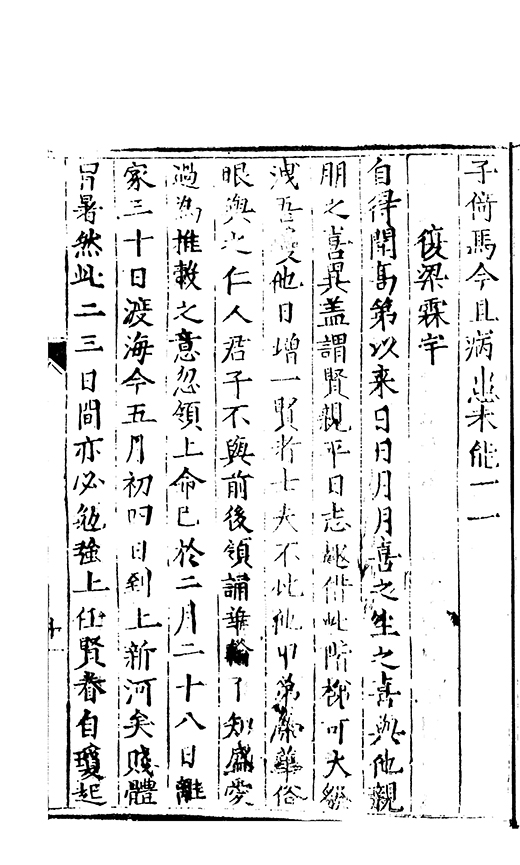 子倚馬今且病患未能一一
復梁霖宇
自得聞高第以來日日月月喜之生之喜與他親
朋之喜異蓋謂賢親平日志趣借此階梯可大發
洩吾愛他日增一賢者士夫不比他中第榮華俗
眼與之仁人君子不與前後領誦華翰了知盛愛
過為推敦之意忽領上命已於二月二十八日離
家三十日渡海今五月初四日到上新河矣賤體
冒暑然此二三日間亦必勉強上任賢眷自瓊起